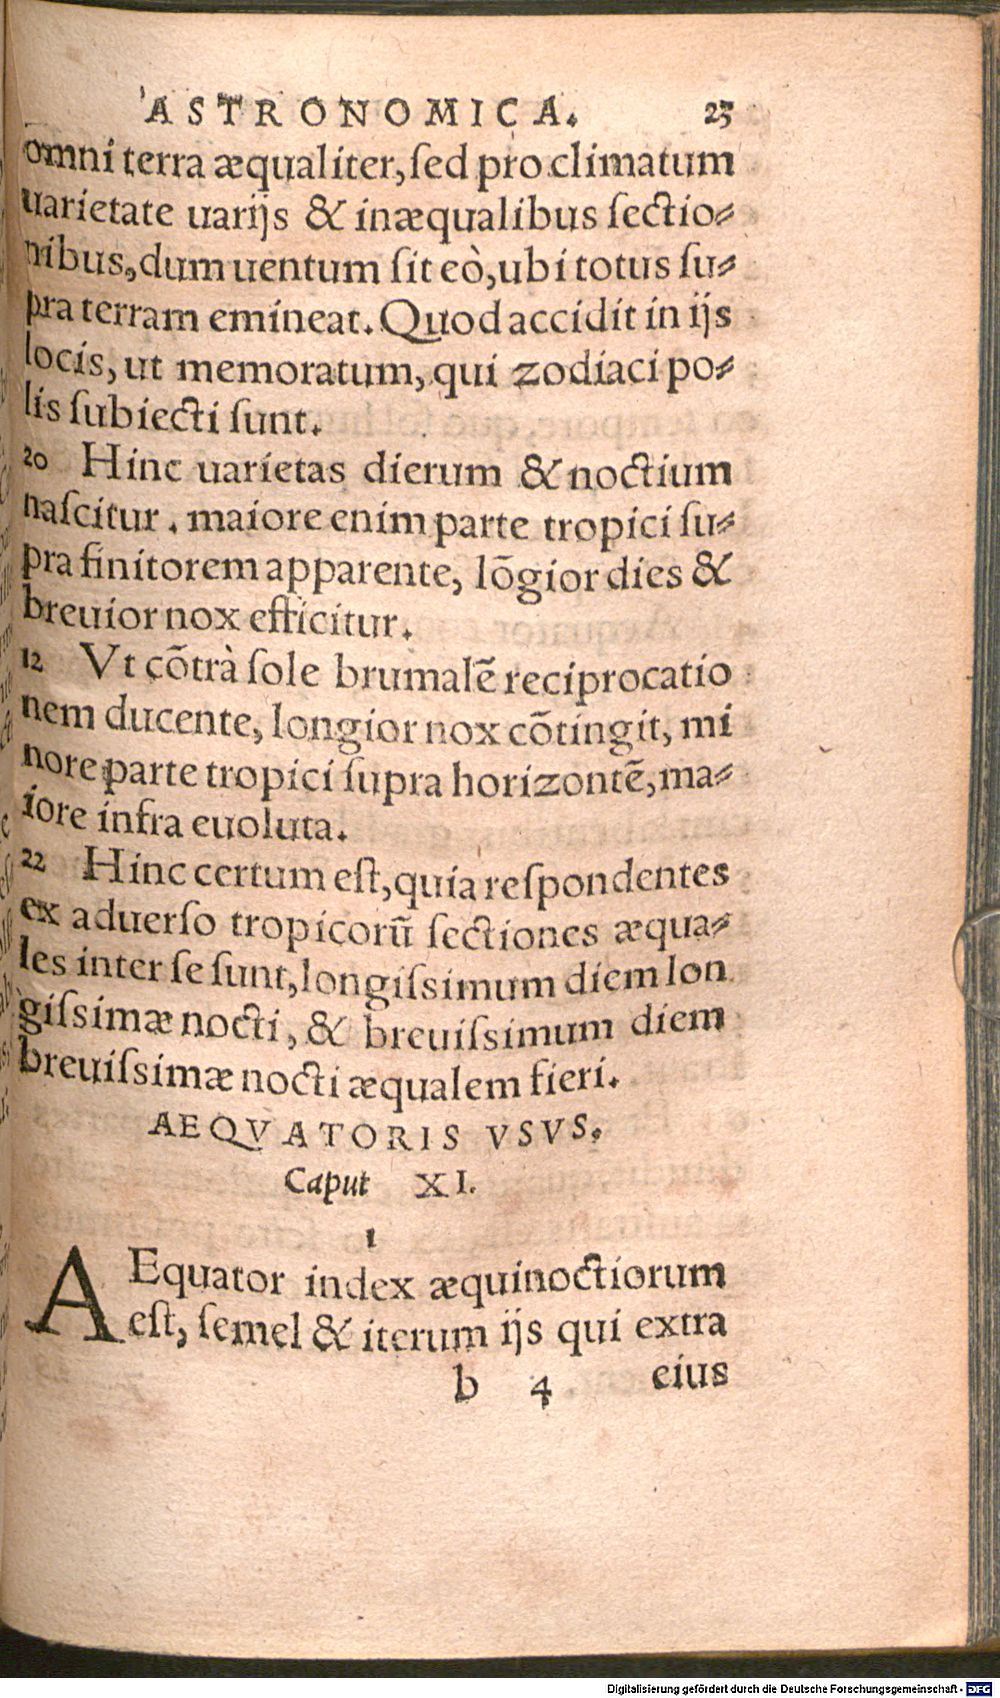 ASTRONOMICA. 23
omni terra æqualiter, sed pro climatum
uarietate uarijs & inæqualibus sectio-
nibus, dum uentum sit eò, ubi totus su-
pra terram emineat. Quod accidit in ijs
locis, ut memoratum, qui zodiaci po-
lis subiecti sunt.
20 Hinc uarietas dierum & noctium
nascitur. maiore enim parte tropici su-
pra finitorem apparente, lõgior dies &
breuior nox efficitur.
12 Vt cõtrà sole brumalẽ reciprocatio
nem ducente, longior nox cõtingit, mi
nore parte tropici supra horizontẽ, ma-
iore infra euoluta.
22 Hinc certum est, quia respondentes
ex aduerso tropicorũ sectiones æqua-
les inter se sunt, longissimum diem lon
gissimæ nocti, & breuissimum diem
breuissimæ nocti æqualem fieri.
AEQVATORIS VSVS.
Caput XI.
1
AEquator index æquinoctiorum
est, semel & iterum ijs qui extra
b 4 eius
Digitalisierung gefördert durch die Deutsche Forschungsgemeinschaft - DFG